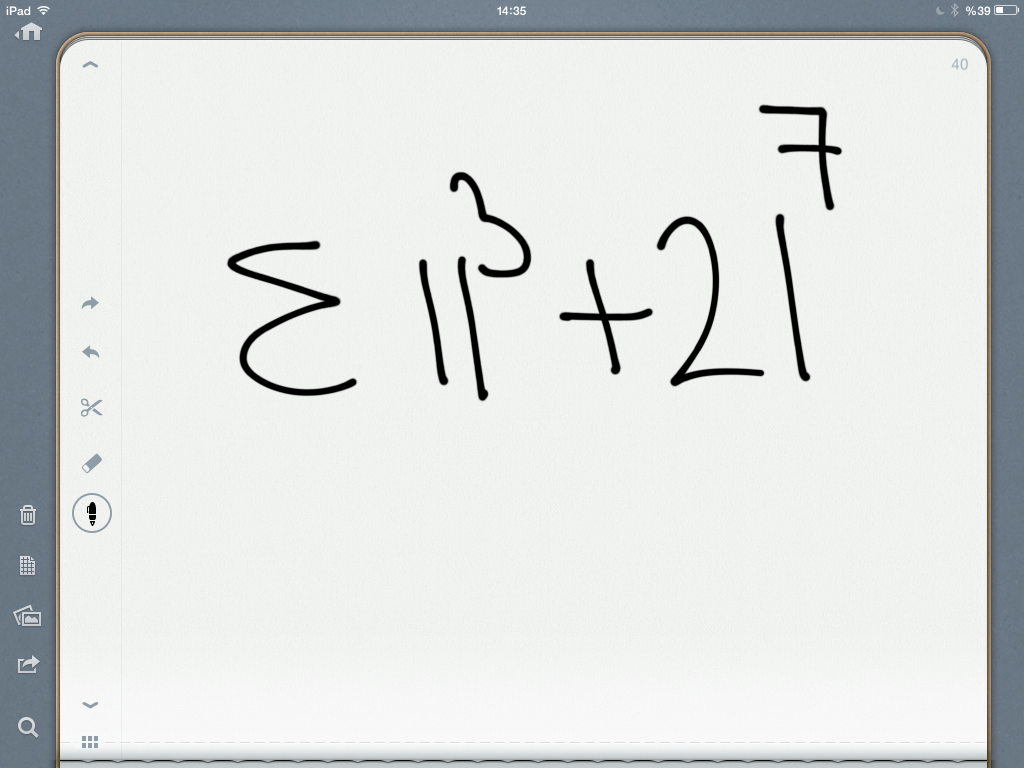 iPad 14:35 %39
40
Σ 11³+21⁷